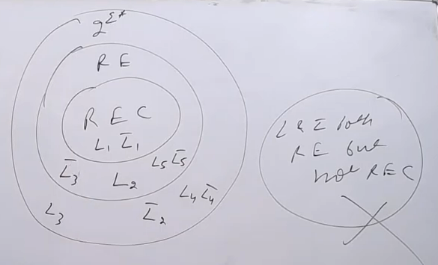 2^Σ*
RE
REC
L₁ L̄₁
L̄₃ L₂ L₅ L̄₅
L₃ L̄₂ L₄ L̄₄
L & L̄ both
RE but
not REC